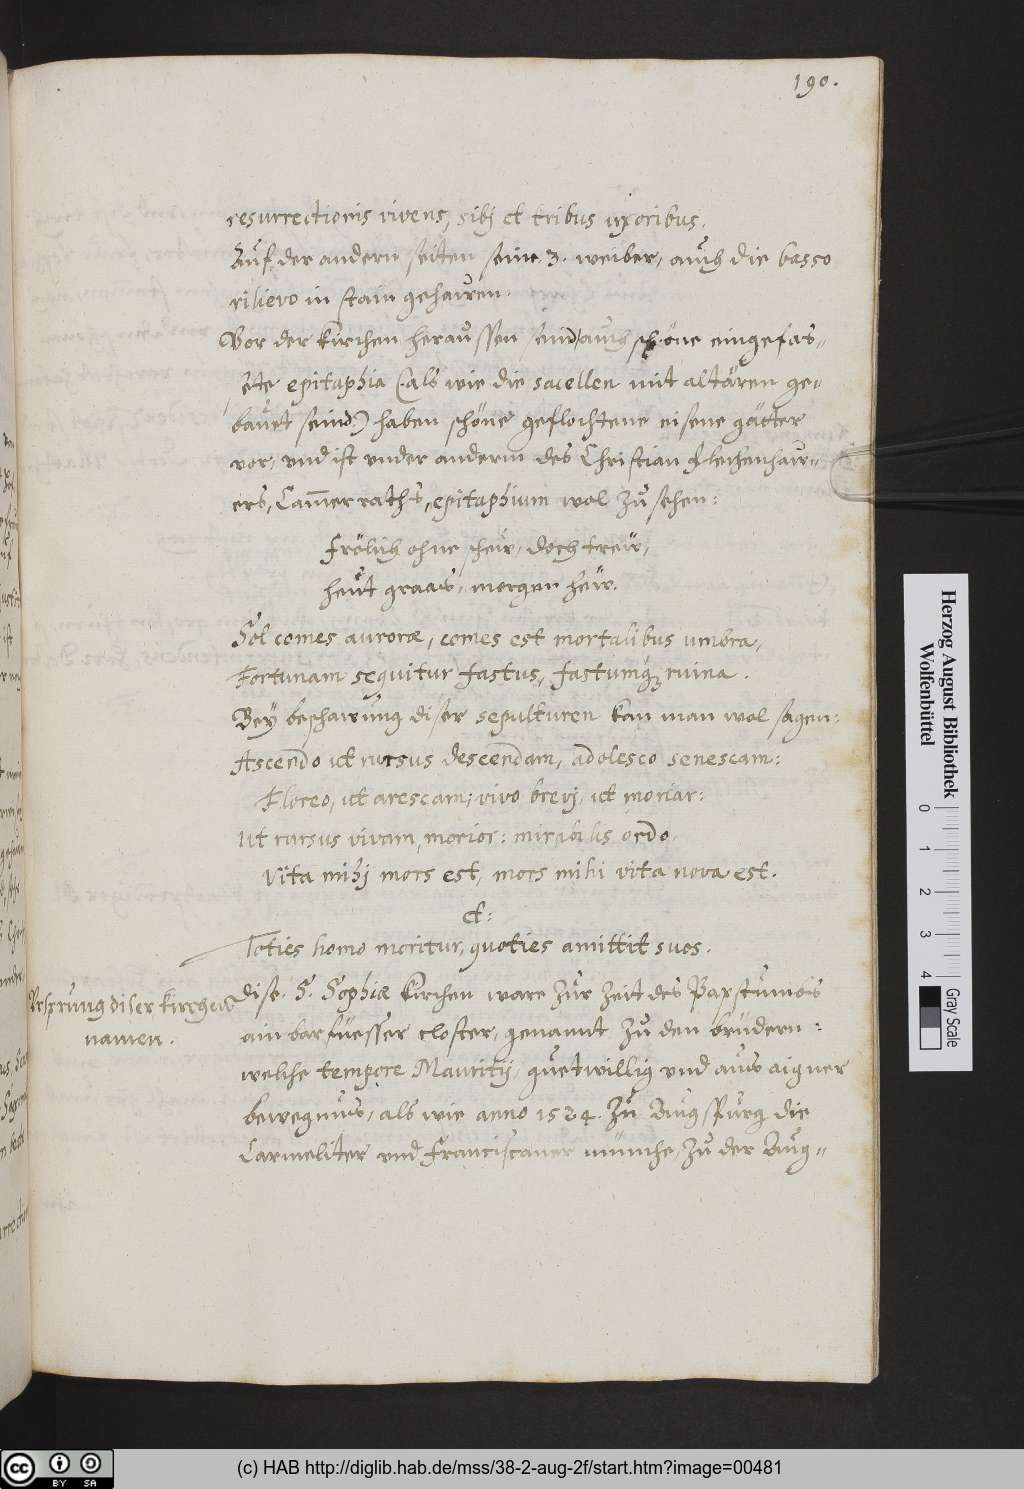 190.
resurrectionis vivens, sibj et tribus uxoribus.
Auf der andern seiten seine 3. weiber, auch die basso
rilievo in stain gehauen.
Vor der Kirchen heraussen seind auch schöne eingefas-
ste epitaphia (als wie die sacellen mit altären ge-
bauet seind) haben schöne geflochtene eisene gätter
vor, und ist under anderm des Christian
ers, Cam̄er raths, epitaphium wol zu sehen:
Frölich ohne scheü, doch treü,
heut graas, morgen heü.
Sol comes auroræ, comes est mortalibus umbra,
Fortunam sequitur fastus, fastumq; ruina.
Bey beschawung diser sepulturen kan man wol sagen:
Ascendo ut rursus descendam, adolesco senescam:
Floreo, ut arescam; vivo brevj, ut moriar:
Ut rursus vivam, morior: mirabilis ordo.
Vita mihj mors est, mors mihi vita nova est.
et:
Toties homo moritur, quoties amittit suos.
Ursprung diser kirchen
namen.
Dise S. Sophiæ Kirchen ware zur zeit des Papstumbs
ain barfüesser closter, genannt zu den brüdern:
welche tempore Mauritij, guetwillig und aus aigner
bewegnus, als wie anno 1524. zu Augspurg die
Carmeliter und Franciscaner münche, zu der Aug-
Herzog August Bibliothek
Wolfenbüttel
0 1 2 3 4
Gray Scale
cc BY SA
(c) HAB http://diglib.hab.de/mss/38-2-aug-2f/start.htm?image=00481